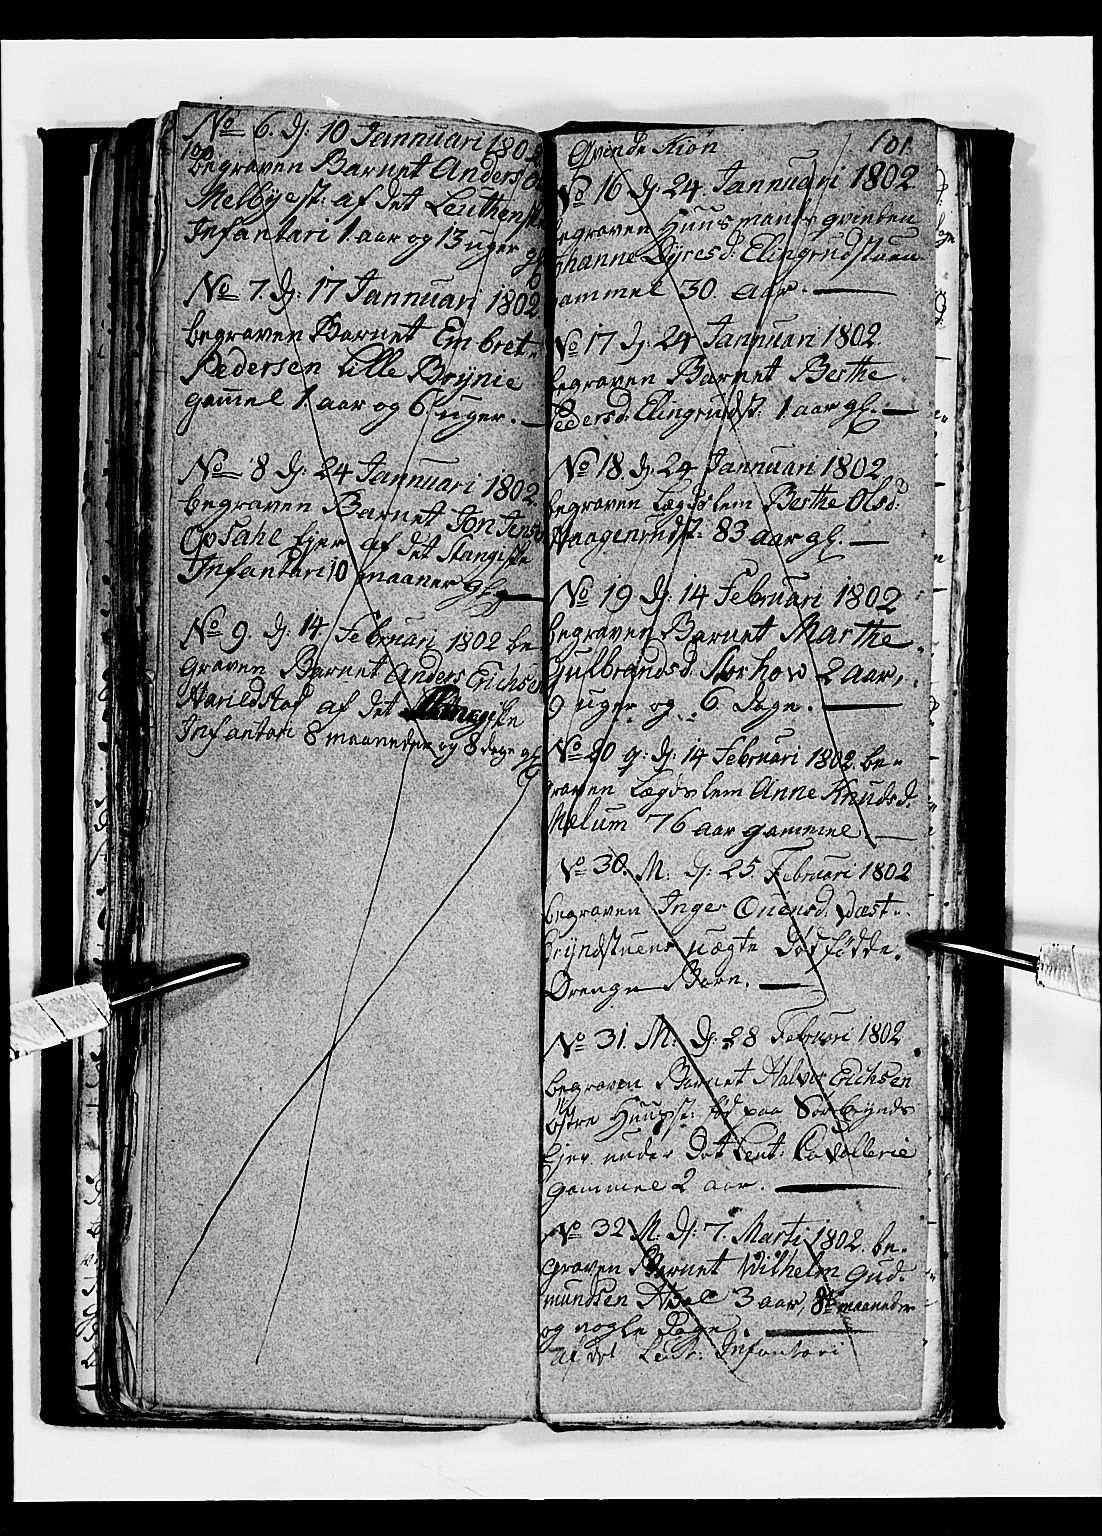 No 6. dj: 10 Jannuari 1802
100
begraven Barnet Anders
Melbyest: af det Leuthenske
Infantari 1. aar og 13 uger gl
No 7. dj: 17 Jannuari 1802
begraven Barnet Embret
Pedersen Lille Brynie
gammel 1. aar og 6. uger. —
No 8 dj: 24 Jannuari 1802.
begraven Barnet Jon Jensen
Opsahl Ejer af det Stangiske
Infantari 10 maaner gl. —
No 9. dj: 14 Februari 1802 be-
graven Barnet Anders Erichsen
Harildstad af det Stangiske
Infantari 8 maaneder og 8 dage gl
Qvende Kiøn
101
No 16 dj: 24. Jannuari 1802.
begraven Huusmands qvinden
Johanne Dyresd: Elingrudstuen
gammel 30. aar. —
No 17 dj: 24 Jannuari 1802.
begraven Barnet Berthe
Pedersd: Elingrudst: 1 aar gl. —
No 18. dj: 24 Jannuari 1802.
begraven Lægdslem Berthe Olsd:
Haagenrudst: 83 aar gl. —
No 19 dj: 14 Februari 1802
begraven Barnet Marthe
Gulbrandsd: Storhow 2 aar,
9 uger og 6 Dage. —
No 20 q: dj: 14 Februari 1802. be-
graven Lægdslem Anne Knudsd:
Mælum 76 aar gammel. —
No 30. M: dj: 25 Februari 1802
begraven Inger Ouensd: Væst-
bryndstuens uægte dødfødde
Drenge Barn. —
No 31. M: dj: 28 Februari 1802.
begraven Barnet Halvor Erichsen
østre Huusst: fød paa Sørbrynds
Ejer under det Leut: Cavallerie
gammel 2 aar. —
No 32 M: dj: 7. Marti 1802. be-
graven Barnet Wilhelm Gud-
mundsen Abel 3 aar, 8te maaneder
og nogle Dage. —
af det Leut: Infantari